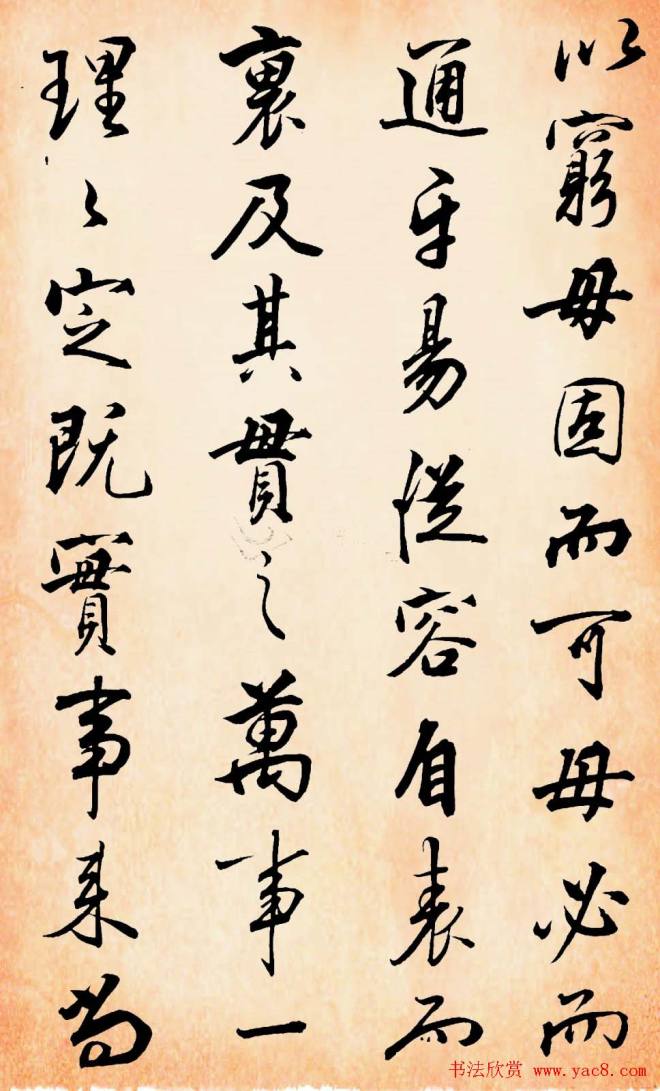 以窮毋固而可毋必而
通平易從容自表而
裏及其貫之萬事一
理〻定既實事來尚
书法欣赏 www.yac8.com